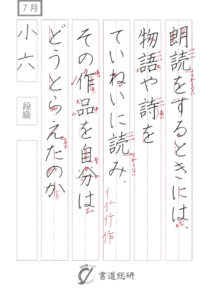 7月
小六
段級
朗読をするときには、
物語や詩を
ていねいに読み、
イ 亻 亻 作
その作品を自分は
どうとらえたのか
書道総研